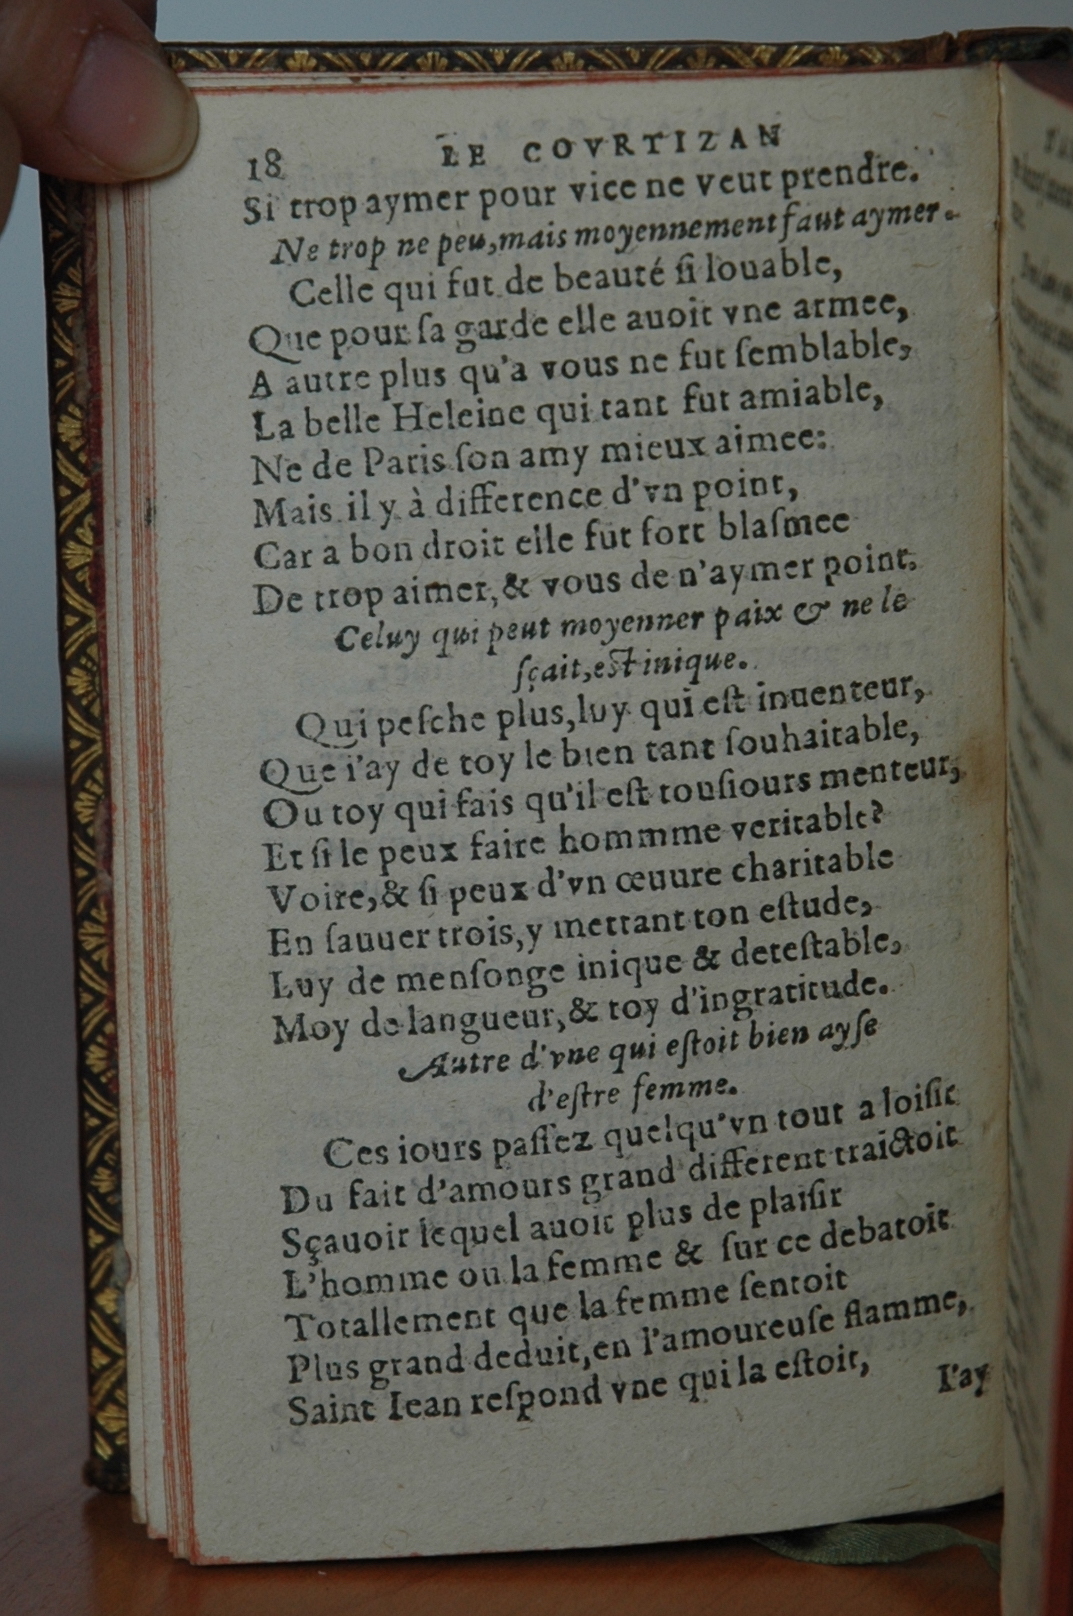 18 LE COVRTIZAN
Si trop aymer pour vice ne veut prendre.
Ne trop ne peu,mais moyennement faut aymer.
Celle qui fut de beauté ſi louable,
Que pour ſa garde elle auoit vne armee,
A autre plus qu'a vous ne fut ſemblable,
La belle Heleine qui tant fut amiable,
Ne de Paris ſon amy mieux aimee:
Mais il y à difference d'vn point,
Car a bon droit elle fut fort blaſmee
De trop aimer,& vous de n'aymer point.
Celuy qui peut moyenner paix & ne le
ſçait,est inique.
Qui peſche plus,luy qui eſt inuenteur,
Que i'ay de toy le bien tant ſouhaitable,
Ou toy qui fais qu'il eſt touſiours menteur,
Et ſi le peux faire hommme veritable?
Voire,& ſi peux d'vn œuure charitable
En ſauuer trois,y mettant ton eſtude,
Luy de menſonge inique & deteſtable,
Moy de langueur,& toy d'ingratitude.
Autre d'vne qui eſtoit bien ayſe
d'eſtre femme.
Ces iours paſſez quelqu'vn tout a loiſir
Du fait d'amours grand different traictoit
Sçauoir lequel auoit plus de plaiſir
L'homme ou la femme & ſur ce debatoit
Totallement que la femme ſentoit
Plus grand deduit,en l'amoureuſe flamme,
Saint Iean reſpond vne qui la eſtoit,
I'ay